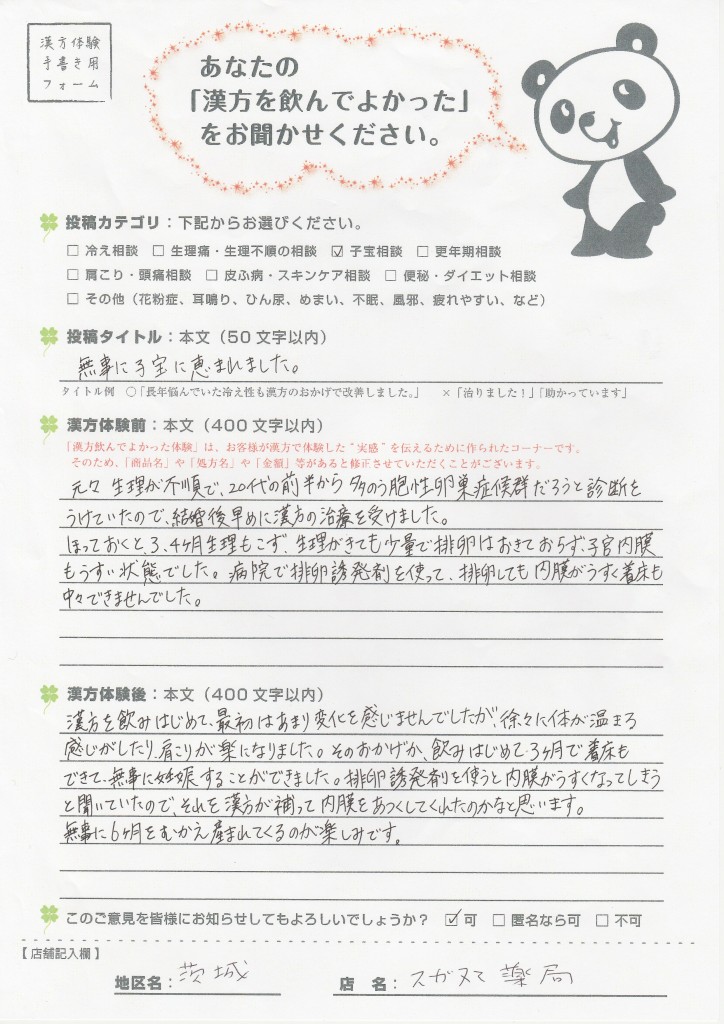 漢方体験
手書き用
フォーム
あなたの
「漢方を飲んでよかった」
をお聞かせください。
投稿カテゴリ：下記からお選びください。
□ 冷え相談 □ 生理痛・生理不順の相談 ☑ 子宝相談 □ 更年期相談
□ 肩こり・頭痛相談 □ 皮ふ病・スキンケア相談 □ 便秘・ダイエット相談
□ その他（花粉症、耳鳴り、ひん尿、めまい、不眠、風邪、疲れやすい、など）
投稿タイトル：本文（50 文字以内）
無事に子宝に恵まれました。
タイトル例 ○「長年悩んでいた冷え性も漢方のおかげで改善しました。」 ×「治りました！」「助かっています」
漢方体験前：本文（400 文字以内）
「漢方飲んでよかった体験」は、お客様が漢方で体験した“実感”を伝えるために作られたコーナーです。
そのため、「商品名」や「処方名」や「金額」等があると修正させていただくことがございます。
元々 生理が不順で、20代の前半から 多のう胞性卵巣症候群だろうと診断を
うけていたので、結婚後早めに漢方の治療を受けました。
ほっておくと、3、4ヶ月生理もこず、生理がきても少量で排卵はおきておらず、子宮内膜
もうすい状態でした。病院で排卵誘発剤を使って、排卵しても内膜がうすく着床も
中々できませんでした。
漢方体験後：本文（400 文字以内）
漢方を飲みはじめて、最初はあまり変化を感じませんでしたが、徐々に体が温まる
感じがしたり、肩こりが楽になりました。そのおかげか、飲みはじめて3ヶ月で着床も
できて、無事に妊娠することができました。排卵誘発剤を使うと内膜がうすくなってしまう
と聞いていたので、それを漢方が補って内膜をあつくしてくれたのかなと思います。
無事に6ヶ月をむかえ産まれてくるのが楽しみです。
このご意見を皆様にお知らせしてもよろしいでしょうか？ ☑ 可 □ 匿名なら可 □ 不可
【店舗記入欄】
地区名：茨城 店 名：スガヌマ薬局